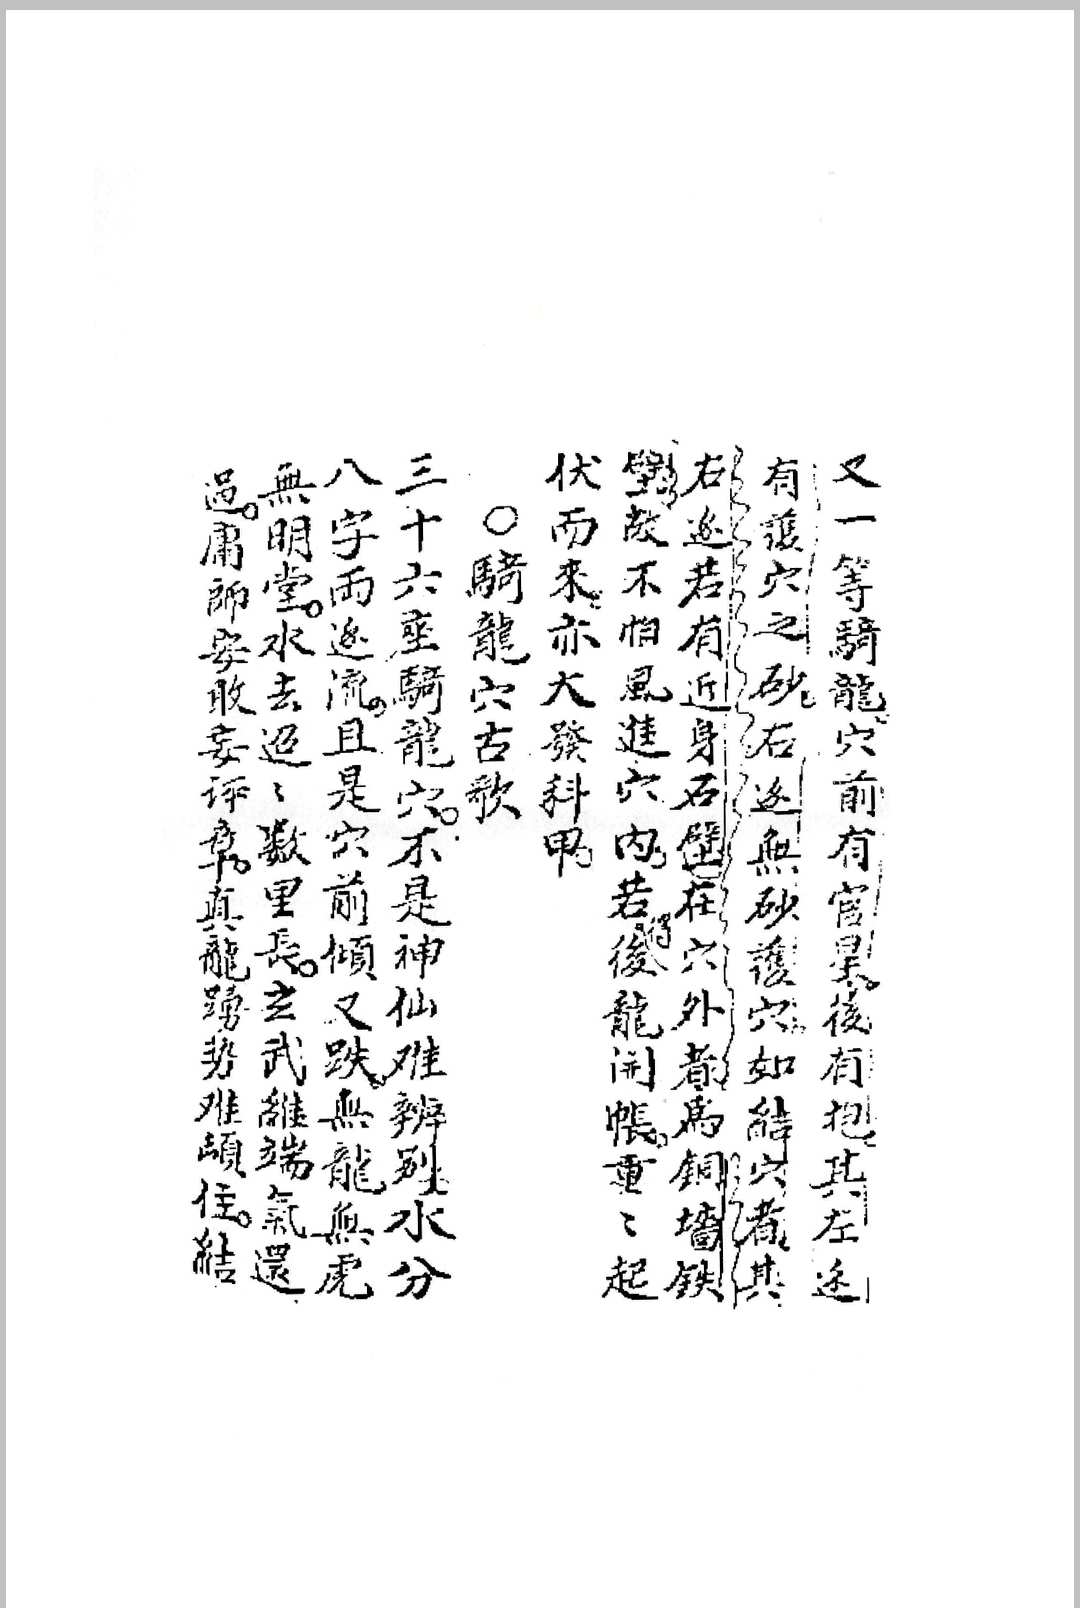 又一等騎龍穴前有官星後有抱其左边
有護穴之砂右边無砂護穴如結穴者其
右边若有近身石壁在穴外者為銅墻鉄
壁故不怕風進穴内若得後龍開帳重々起
伏而來亦大發科甲
○騎龍穴古歌
三十六座騎龍穴不是神仙难辨别水分
八字両边流且是穴前傾又跌無龍無虎
無明堂水去迢々数里長玄武雖端氣還
過庸師安敢妄评章真龍踴势难頓住結